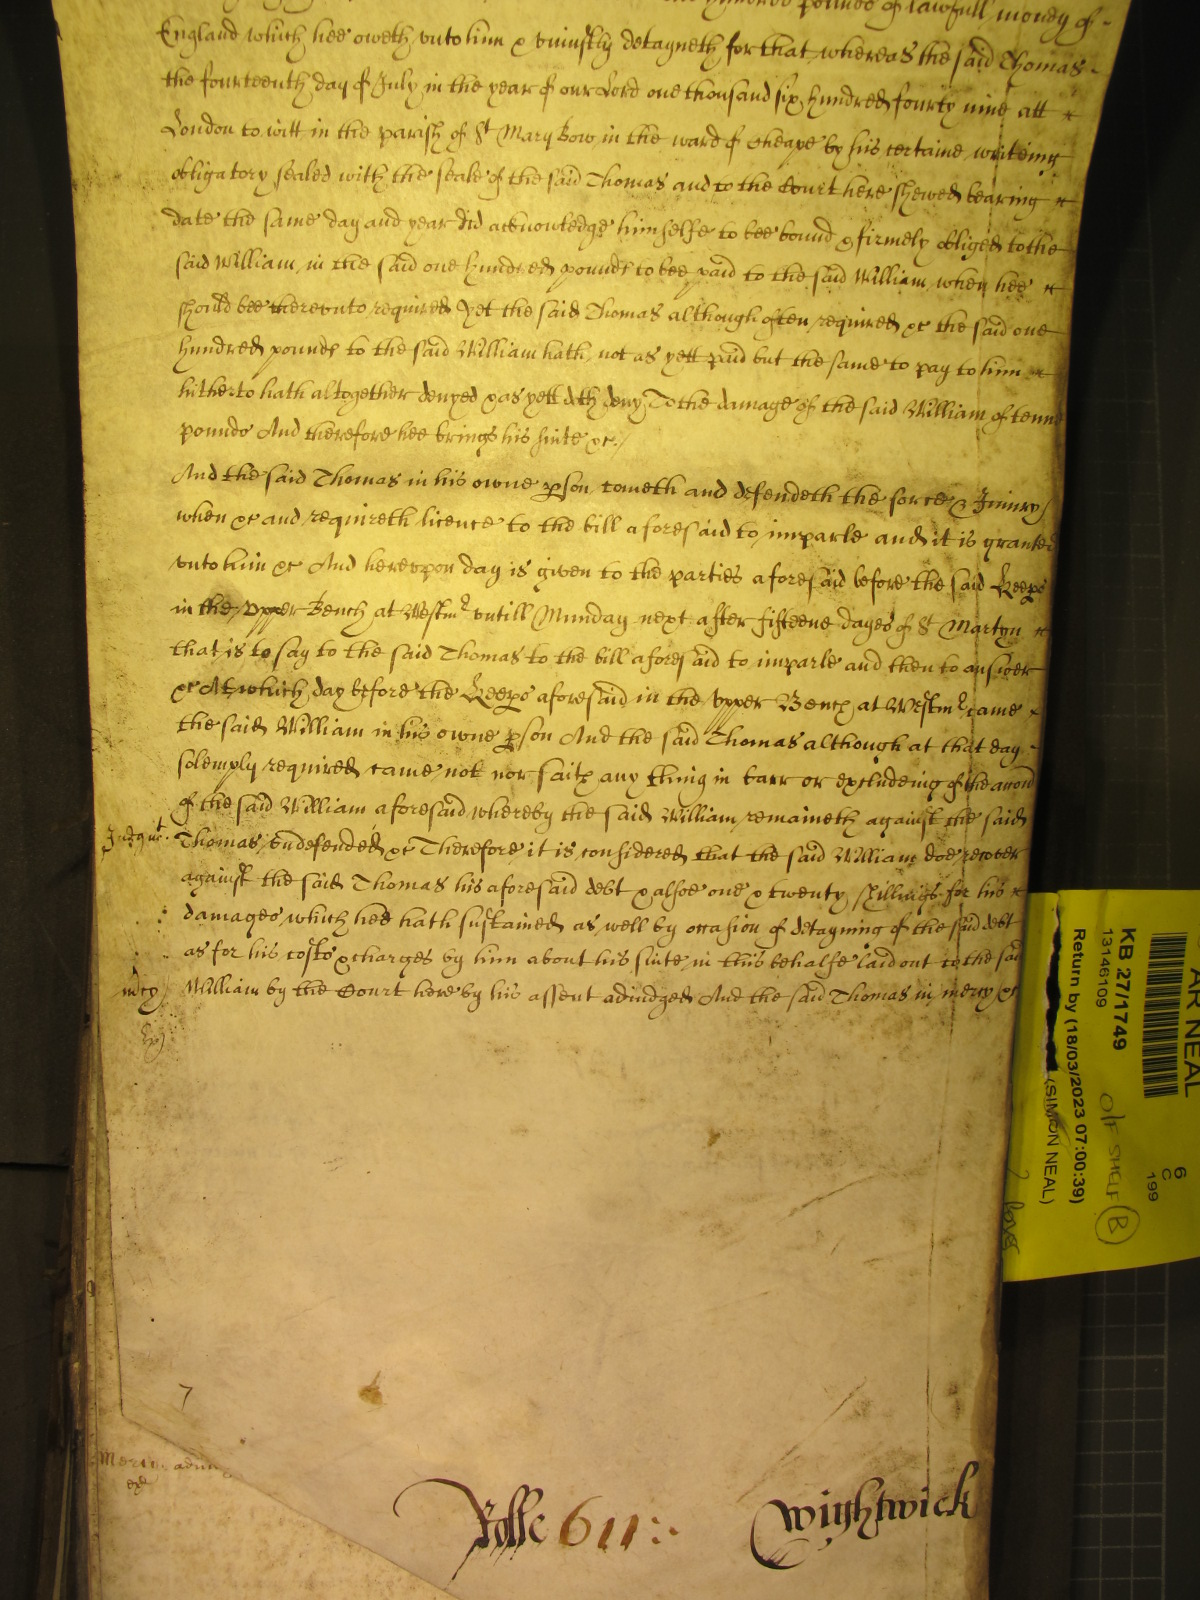 hundred pounds of lawfull money of
England which hee oweth vnto him & vniustly detayneth for that whereas the said Thomas
the fourteenth day of July in the year of our Lord one thousand six hundred fourty nine att
London to witt in the parish of St Mary Bow in the ward of Cheape by his certaine writeing
obligatory sealed with the seale of the said Thomas and to the Court here shewed bearing
date the same day and year did acknowledge himselfe to bee bound & firmely obliged to the
said William in the said one hundred pounds to bee paid to the said William when hee
should bee therevnto required Yet the said Thomas although often required &c the said one
hundred pounds to the said William hath not as yett paid but the same to pay to him
hitherto hath altogether denyed & as yett doth deny To the damage of the said William of tenn
pounds And therefore hee brings his suite &c
And the said Thomas in his owne pson cometh and defendeth the force & Iniury
when &c and requireth licence to the bill aforesaid to imparle and it is granted
vnto him &c And herevpon day is given to the parties aforesaid before the said Keeps
in the vpper Bench at Westmr vntill Munday next after fifteene dayes of St Martyn
that is to say to the said Thomas to the bill aforesaid to imparle and then to answer
&c At which day before the Keeps aforesaid in the vpper Bench at Westmr came
the said William in his owne pson And the said Thomas although at that day
solemply required came not nor saith any thing in barr or excludeing of the accon
of the said William aforesaid whereby the said William remaineth against the said
Judgmt Thomas vndefended &c Therefore it is considered that the said William doe recover
against the said Thomas his aforesaid debt & alsoe one & twenty shillings for his
damages which hee hath sustained as well by occasion of detayning of the said debt
as for his costs & charges by him about his suite in this behalfe laid out to the said
mcy William by the Court here by his assent adiudged And the said Thomas in mercy &c
7
Rolle 611 Wightwick
AR NEAL
KB 27/1749
13146109
Return by (18/03/2023 07:00:39)
(SIMON NEAL)
6
C
199
O/F SHELF B